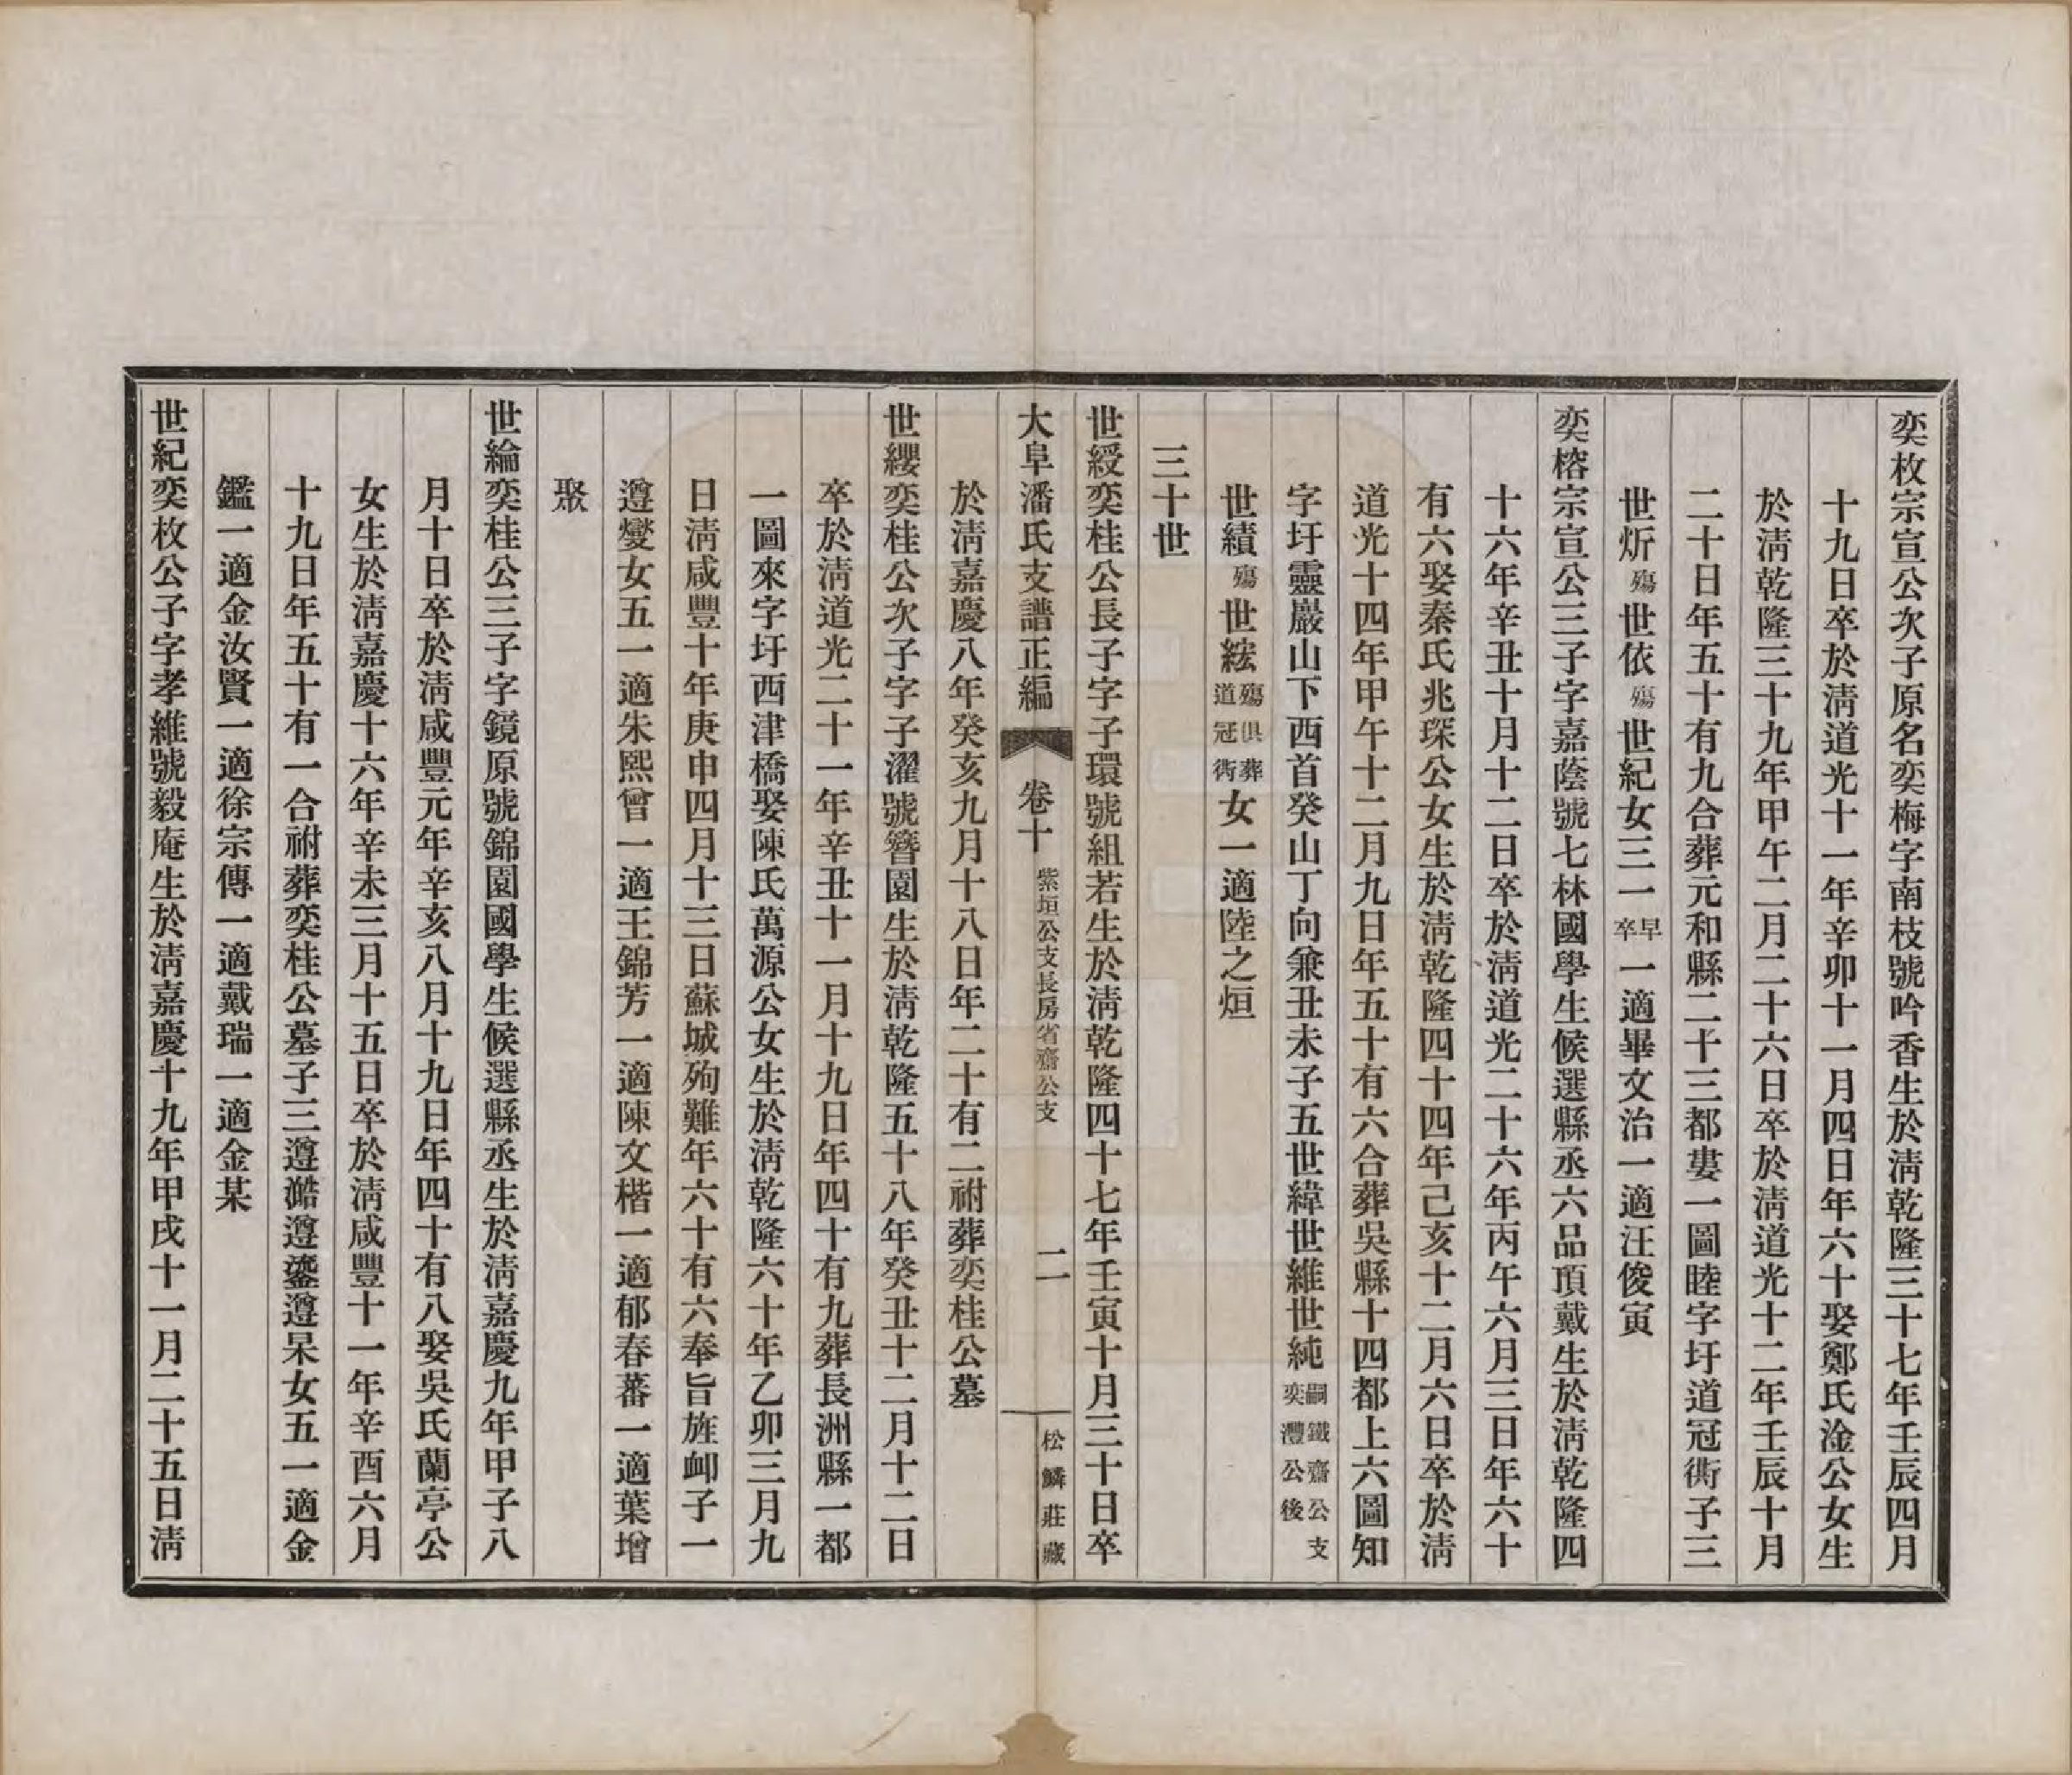 奕枚宗宣公次子原名奕梅字南枝號吟香生於淸乾隆三十七年壬辰四月
十九日卒於淸道光十一年辛卯十一月四日年六十娶鄭氏淦公女生
於淸乾隆三十九年甲午二月二十六日卒於淸道光十二年壬辰十月
二十日年五十有九合葬元和縣二十三都婁一圖睦字圩道冠衖子三
世炘殤世依殤世紀女三一早卒一適畢文治一適汪俊寅
奕榕宗宣公三子字嘉蔭號七林國學生候選縣丞六品頂戴生於淸乾隆四
十六年辛丑十月十二日卒於淸道光二十六年丙午六月三日年六十
有六娶秦氏兆琛公女生於淸乾隆四十四年己亥十二月六日卒於淸
道光十四年甲午十二月九日年五十有六合葬吳縣十四都上六圖知
字圩靈巖山下西首癸山丁向兼丑未子五世緯世維世純嗣鐵齋公支奕灃公後
世績殤世綋殤俱葬道冠衖女一適陸之烜
三十世
世綬奕桂公長子字子環號組若生於淸乾隆四十七年壬寅十月三十日卒
大阜潘氏支譜正編 卷十 紫垣公支長房省齋公支 二 松鱗莊藏
於淸嘉慶八年癸亥九月十八日年二十有二祔葬奕桂公墓
世纓奕桂公次子字子濯號簪園生於淸乾隆五十八年癸丑十二月十二日
卒於淸道光二十一年辛丑十一月十九日年四十有九葬長洲縣一都
一圖來字圩西津橋娶陳氏萬源公女生於淸乾隆六十年乙卯三月九
日淸咸豐十年庚申四月十三日蘇城殉難年六十有六奉旨旌卹子一
遵燮女五一適朱熙曾一適王錦芳一適陳文楷一適郁春蕃一適葉增
聚
世綸奕桂公三子字鏡原號錦園國學生候選縣丞生於淸嘉慶九年甲子八
月十日卒於淸咸豐元年辛亥八月十九日年四十有八娶吳氏蘭亭公
女生於淸嘉慶十六年辛未三月十五日卒於淸咸豐十一年辛酉六月
十九日年五十有一合祔葬奕桂公墓子三遵澔遵鎏遵杲女五一適金
鑑一適金汝賢一適徐宗傳一適戴瑞一適金某
世紀奕枚公子字孝維號毅庵生於淸嘉慶十九年甲戌十一月二十五日淸